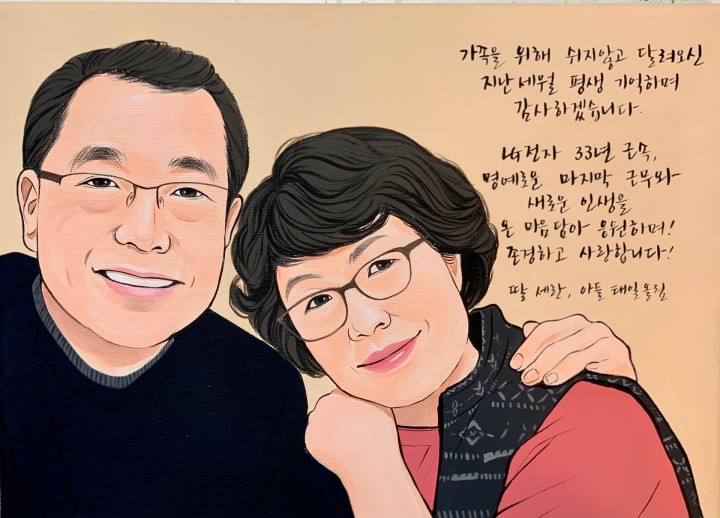 가족을 위해 쉬지않고 달려오신
지난 세월 평생 기억하며
감사하겠습니다.
LG전자 33년 근속,
명예로운 마지막 근무와
새로운 인생을
온 마음 담아 응원하며!
존경하고 사랑합니다!
딸 세란, 아들 태일 올림